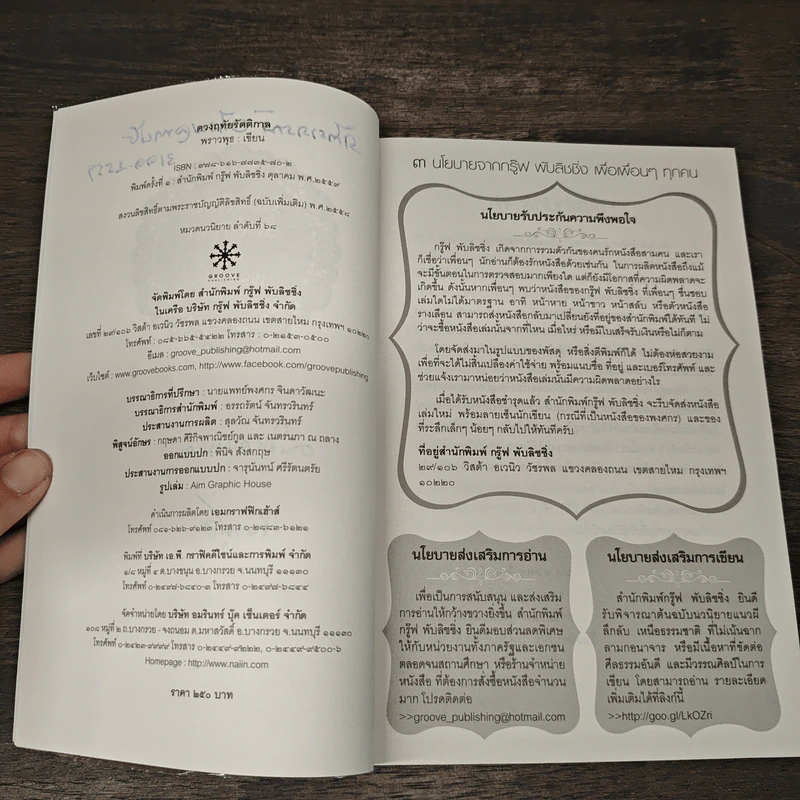 ดวงฤทัยรัตติกาล
พราวพุธ : เขียน
ISBN : ๙๗๘-๖๑๖-๗๗๓๕-๗๐-๒
พิมพ์ครั้งที่ ๑ : สำนักพิมพ์ กรู๊ฟ พับลิชชิ่ง ตุลาคม พ.ศ.๒๕๕๙
สงวนลิขสิทธิ์ตามพระราชบัญญัติลิขสิทธิ์ (ฉบับเพิ่มเติม) พ.ศ.๒๕๕๘
หมวดนวนิยาย ลำดับที่ ๖๘
GROOVE
PUBLISHING
จัดพิมพ์โดย สำนักพิมพ์ กรู๊ฟ พับลิชชิ่ง
ในเครือ บริษัท กรู๊ฟ พับลิชชิ่ง จำกัด
เลขที่ ๒๙/๑๐๖ วิสต้า อเวนิว วัชรพล แขวงคลองถนน เขตสายไหม กรุงเทพฯ ๑๐๒๒๐
โทรศัพท์ : ๐๘๕-๖๖๕-๕๔๒๒ โทรสาร : ๐-๒๑๕๓-๐๕๐๐
อีเมล : groove_publishing@hotmail.com
เว็บไซต์ : www.groovebooks.com, http://www.facebook.com/groovepublishing
บรรณาธิการที่ปรึกษา : นายแพทย์พงศกร จินดาวัฒนะ
บรรณาธิการสำนักพิมพ์ : อรรถรัตน์ จันทรวรินทร์
ประสานงานการผลิต : สุลวัณ จันทรวรินทร์
พิสูจน์อักษร : กฤษดา ศิริกิจพาณิชย์กูล และ เนตรนภา ณ ถลาง
ออกแบบปก : พินิจ สังสกฤษ
ประสานงานการออกแบบปก : จารุนันทน์ ศรีรัตนตรัย
รูปเล่ม : Aim Graphic House
ดำเนินการผลิตโดย เอมกราฟฟิกเฮ้าส์
โทรศัพท์ ๐๘๑-๖๒๖-๙๑๒๓ โทรสาร ๐-๒๘๘๓-๖๑๒๑
พิมพ์ที่ บริษัท เอ.พี. กราฟิคดีไซน์และการพิมพ์ จำกัด
๑/๘ หมู่ที่ ๔ ต.บางขนุน อ.บางกรวย จ.นนทบุรี ๑๑๑๓๐
โทรศัพท์ ๐-๒๔๙๗-๖๘๔๐-๓ โทรสาร ๐-๒๔๙๗-๖๘๔๔
จัดจำหน่ายโดย บริษัท อมรินทร์ บุ๊ค เซ็นเตอร์ จำกัด
๑๐๘ หมู่ที่ ๒ ถ.บางกรวย - จงถนอม ต.มหาสวัสดิ์ อ.บางกรวย จ.นนทบุรี ๑๑๑๓๐
โทรศัพท์ ๐-๒๔๒๓-๙๙๙๙ โทรสาร ๐-๒๔๔๙-๙๒๒๒, ๐-๒๔๔๙-๙๕๐๐-๖
Homepage : http://www.naiin.com
ราคา ๒๕๐ บาท
๓ นโยบายจากกรู๊ฟ พับลิชชิ่ง เพื่อเพื่อนๆ ทุกคน
นโยบายรับประกันความพึงพอใจ
กรู๊ฟ พับลิชชิ่ง เกิดจากการรวมตัวกันของคนรักหนังสือสามคน และเรา
ก็เชื่อว่าเพื่อนๆ นักอ่านก็ต้องรักหนังสือด้วยเช่นกัน ในการผลิตหนังสือถึงแม้
จะมีขั้นตอนในการตรวจสอบมากเพียงใด แต่ก็ยังมีโอกาสที่ความผิดพลาดจะ
เกิดขึ้น ดังนั้นหากเพื่อนๆ พบว่าหนังสือของกรู๊ฟ พับลิชชิ่ง ที่เพื่อนๆ ชื่นชอบ
เล่มใดไม่ได้มาตรฐาน อาทิ หน้าหาย หน้าขาว หน้าสลับ หรือตัวหนังสือ
รางเลือน สามารถส่งหนังสือกลับมาเปลี่ยนยังที่อยู่ของสำนักพิมพ์ได้ทันที ไม่
ว่าจะซื้อหนังสือเล่มนั้นจากที่ไหน เมื่อไหร่ หรือมีใบเสร็จรับเงินหรือไม่ก็ตาม
โดยจัดส่งมาในรูปแบบของพัสดุ หรือสิ่งตีพิมพ์ก็ได้ ไม่ต้องห่อสวยงาม
เพื่อที่จะได้ไม่สิ้นเปลืองค่าใช้จ่าย พร้อมแนบชื่อ ที่อยู่ และเบอร์โทรศัพท์ และ
ช่วยแจ้งเรามาหน่อยว่าหนังสือเล่มนั้นมีความผิดพลาดอย่างไร
เมื่อได้รับหนังสือชำรุดแล้ว สำนักพิมพ์กรู๊ฟ พับลิชชิ่ง จะรีบจัดส่งหนังสือ
เล่มใหม่ พร้อมลายเซ็นนักเขียน (กรณีที่เป็นหนังสือของพงศกร) และของ
ที่ระลึกเล็กๆ น้อยๆ กลับไปให้ทันทีครับ
ที่อยู่สำนักพิมพ์ กรู๊ฟ พับลิชชิ่ง
๒๙/๑๐๖ วิสต้า อเวนิว วัชรพล แขวงคลองถนน เขตสายไหม กรุงเทพฯ
๑๐๒๒๐
นโยบายส่งเสริมการอ่าน
เพื่อเป็นการสนับสนุน และส่งเสริม
การอ่านให้กว้างขวางยิ่งขึ้น สำนักพิมพ์
กรู๊ฟ พับลิชชิ่ง ยินดีมอบส่วนลดพิเศษ
ให้กับหน่วยงานทั้งภาครัฐและเอกชน
ตลอดจนสถานศึกษา หรือร้านจำหน่าย
หนังสือ ที่ต้องการสั่งซื้อหนังสือจำนวน
มาก โปรดติดต่อ
>>groove_publishing@hotmail.com
นโยบายส่งเสริมการเขียน
สำนักพิมพ์กรู๊ฟ พับลิชชิ่ง ยินดี
รับพิจารณาต้นฉบับนวนิยายแนวผี
ลึกลับ เหนือธรรมชาติ ที่ไม่เน้นฉาก
ลามกอนาจาร หรือมีเนื้อหาที่ขัดต่อ
ศีลธรรมอันดี และมีวรรณศิลป์ในการ
เขียน โดยสามารถอ่าน รายละเอียด
เพิ่มเติมได้ที่ลิงก์นี้
>>http://goo.gl/LkOZri